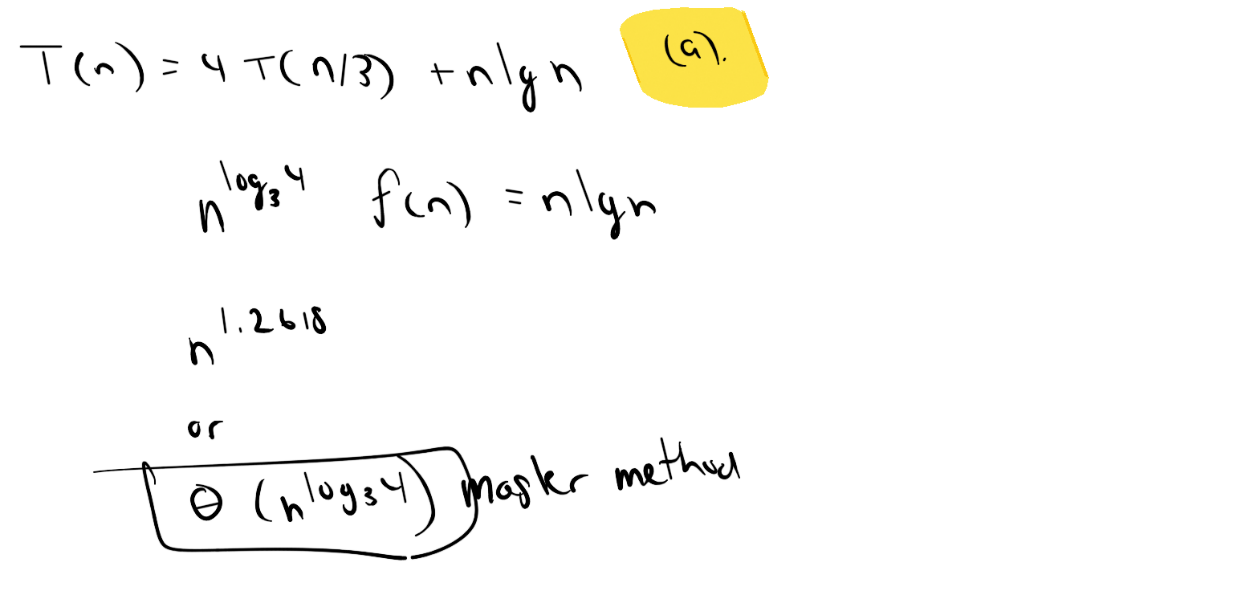 T(n) = 4 T(n/3) + n lg n (a).
n^log₃4 f(n) = n lg n
n^1.2618
or
Θ (n^log₃4) master method